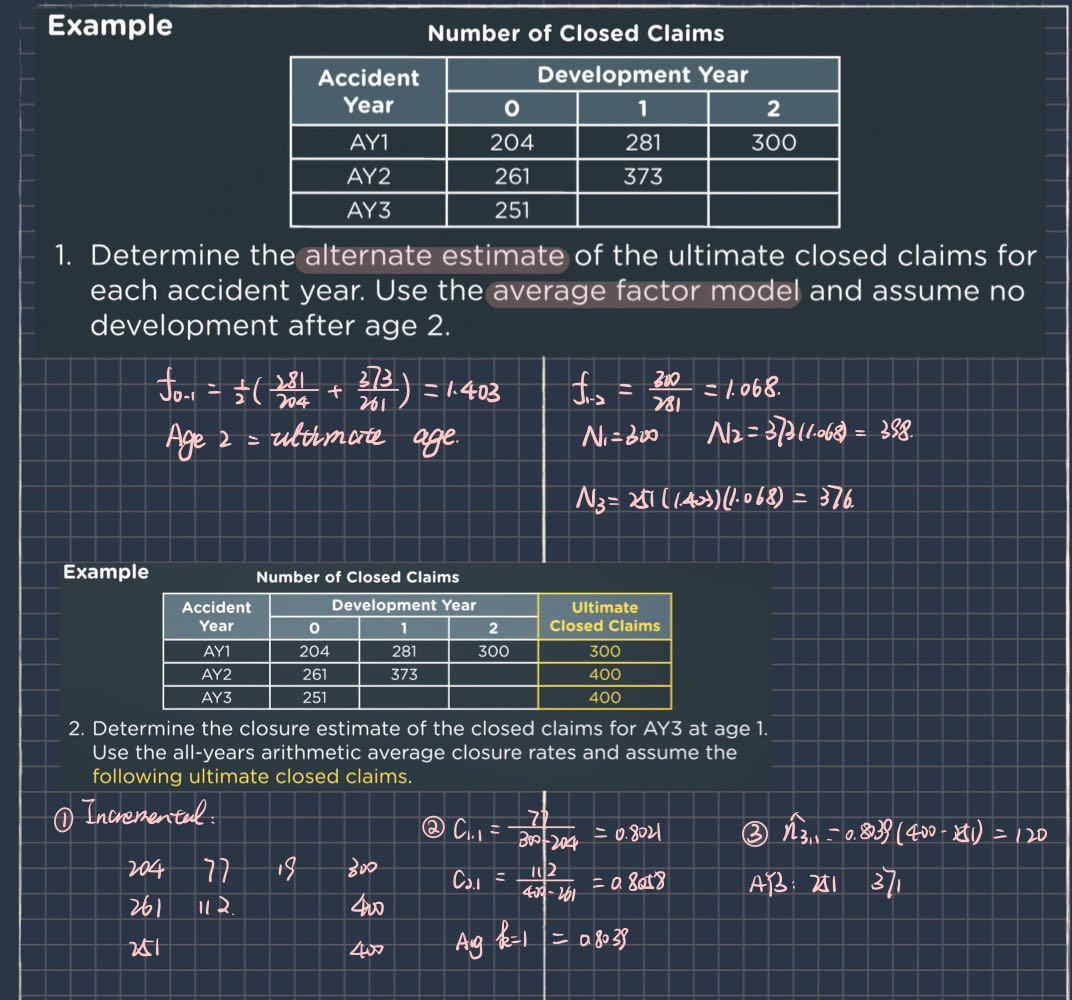 Example
Number of Closed Claims
Accident Year Development Year
0 1 2
AY1 204 281 300
AY2 261 373
AY3 251
1. Determine the alternate estimate of the ultimate closed claims for
each accident year. Use the average factor model and assume no
development after age 2.
f0-1 = 1/2 ( 281/204 + 373/261 ) = 1.403
Age 2 = ultimate age.
f1-2 = 300/281 = 1.068.
N1 = 300 N2 = 373(1.068) = 398.
N3 = 251(1.403)(1.068) = 376.
Example
Number of Closed Claims
Accident Year Development Year Ultimate Closed Claims
0 1 2
AY1 204 281 300 300
AY2 261 373 400
AY3 251 400
2. Determine the closure estimate of the closed claims for AY3 at age 1.
Use the all-years arithmetic average closure rates and assume the
following ultimate closed claims.
① Incremental:
204 77 19 300
261 112. 400
251 400
② C1,1 = 77/(300-204) = 0.8021
C2,1 = 112/(400-261) = 0.8058
Avg k=1 = 0.8039
③ n̂3,1 = 0.8039(400-251) = 120
AY3: 251 371